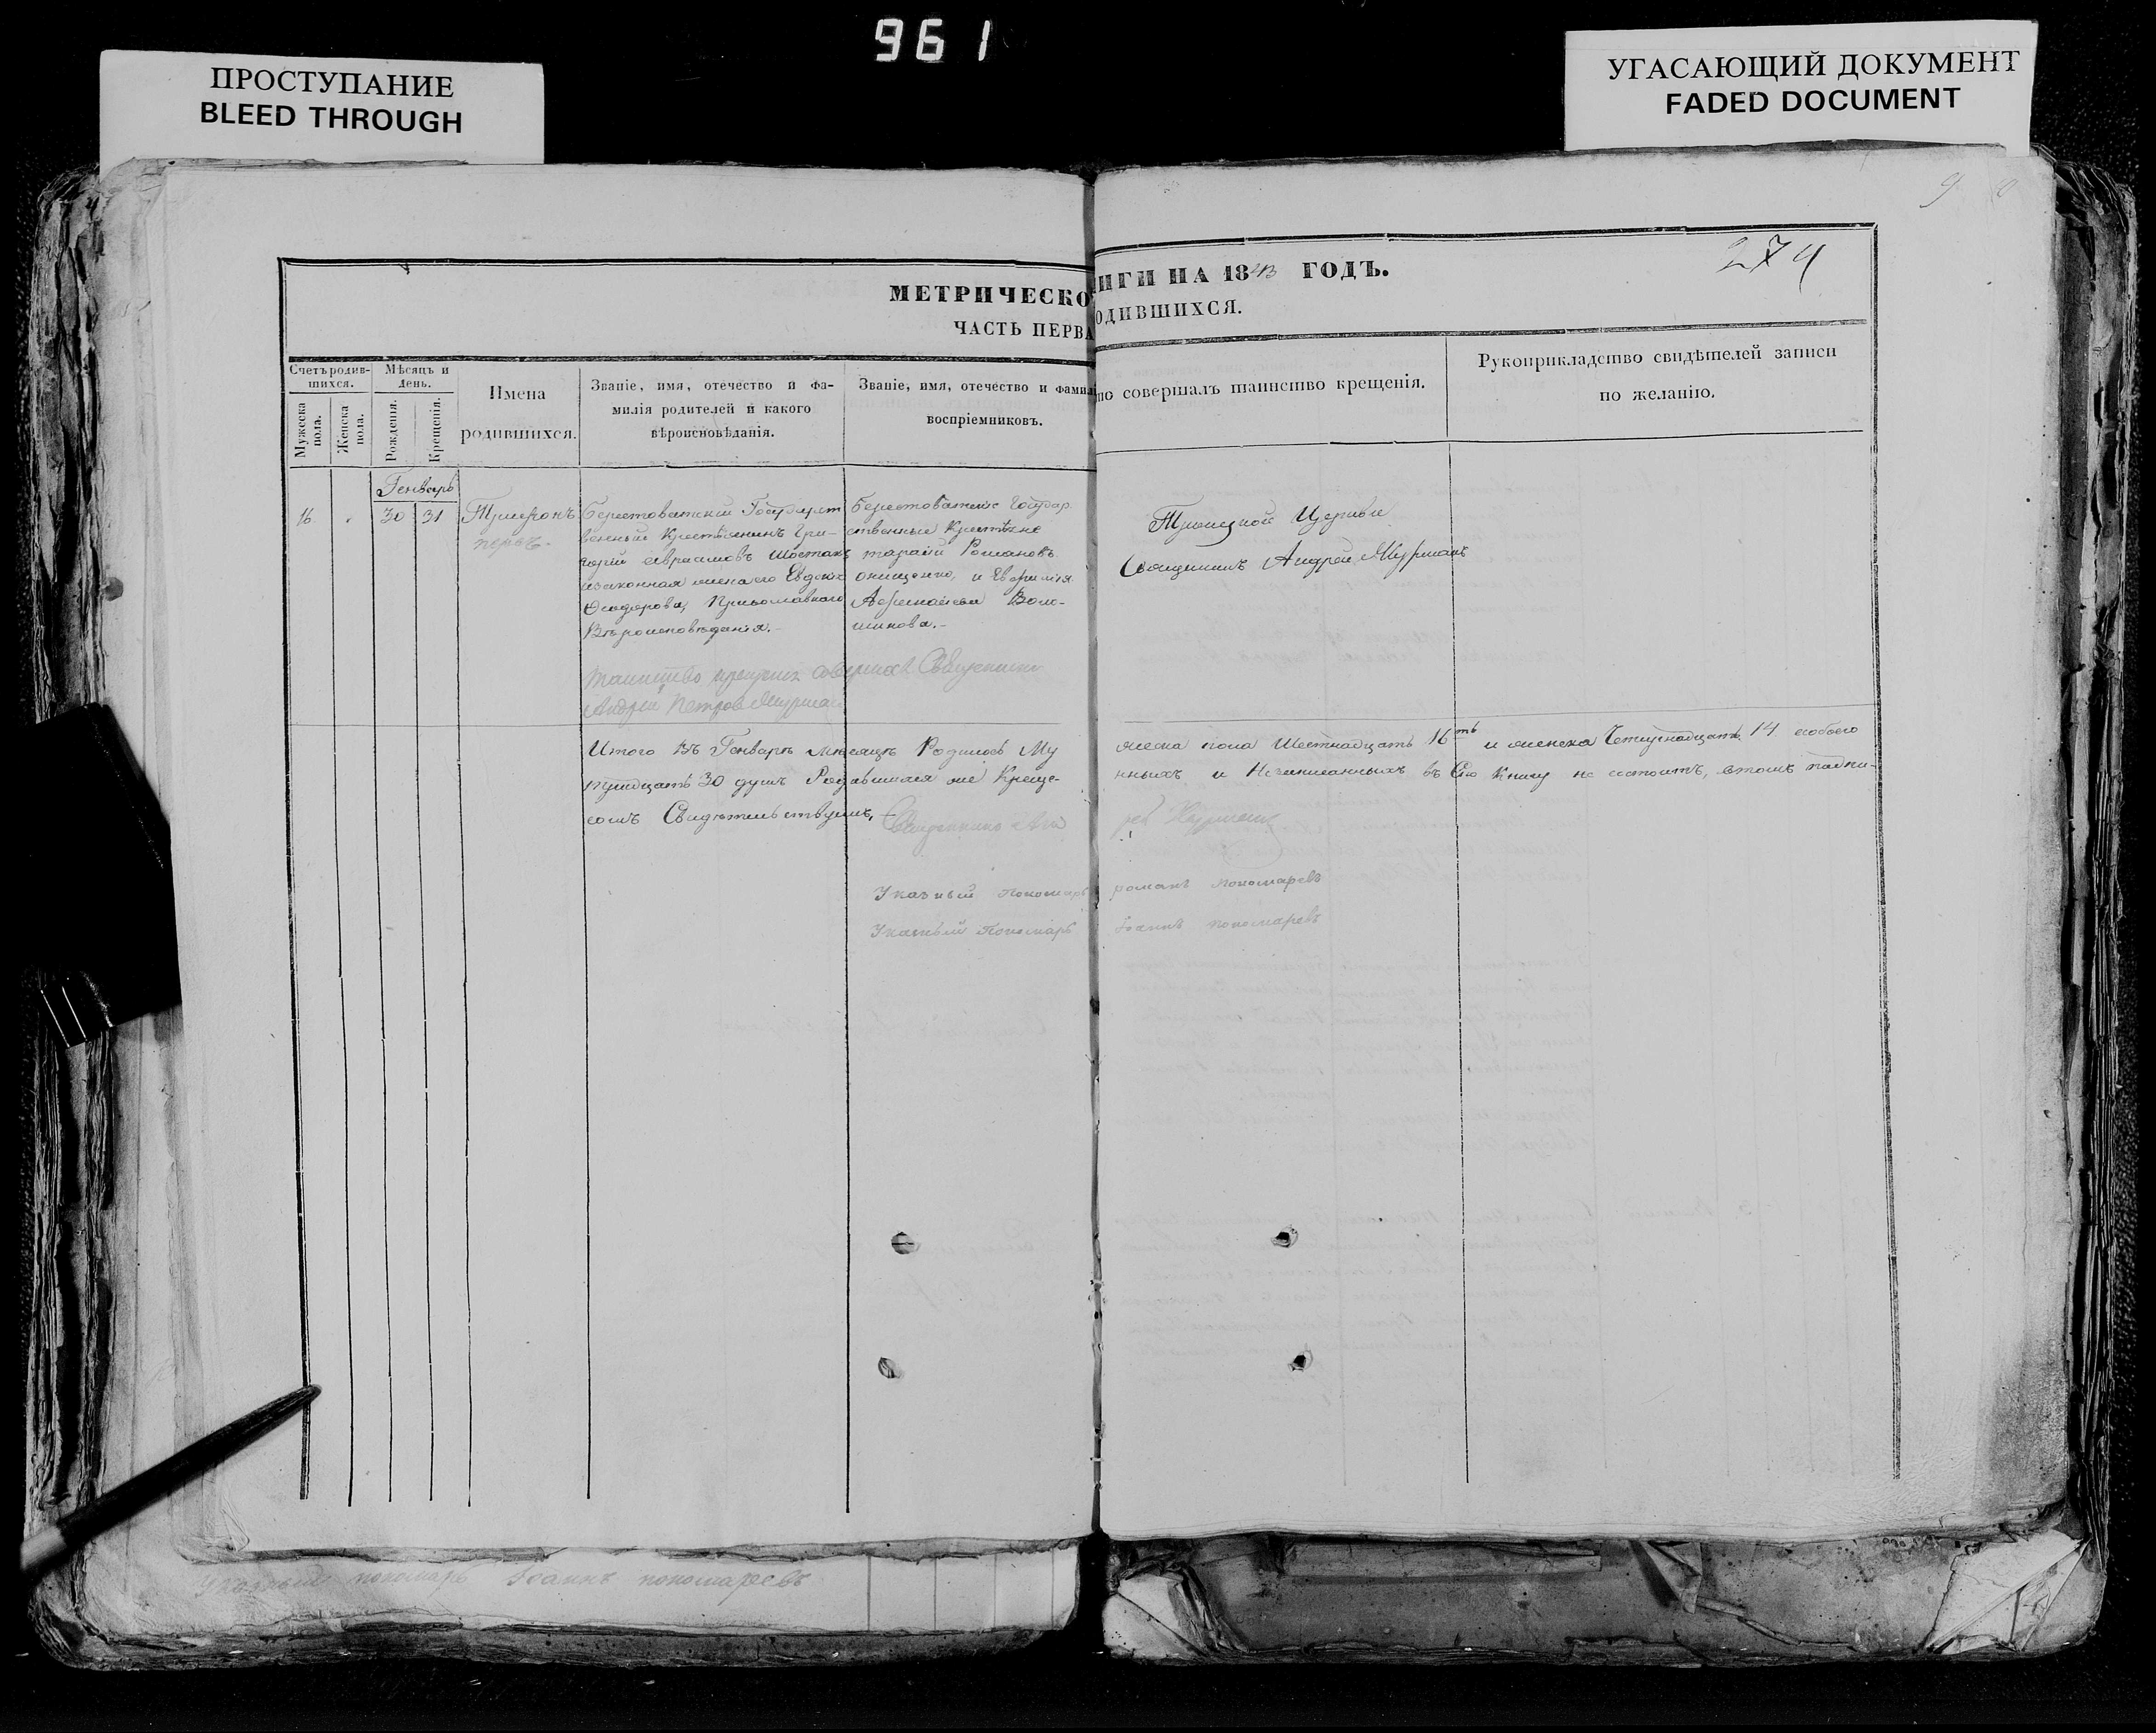 961
ПРОСТУПАНИЕ
BLEED THROUGH
УГАСАЮЩИЙ ДОКУМЕНТ
FADED DOCUMENT
274
МЕТРИЧЕСКО
ИГИ НА 1843 ГОДЪ.
ЧАСТЬ ПЕРВА
ОДИВШИХСЯ.
Счетъ родив-
шихся.
Мужеска
пола.
Женска
пола.
Мѣсяцъ и
день.
Рожденія.
Крещенія.
Имена
родившихся.
Званіе, имя, отечество и фа-
милія родителей и какого
вѣроисповѣданія.
Званіе, имя, отечество и фамилі
воспріемниковъ.
то совершалъ таинство крещенія.
Рукоприкладство свидѣтелей записи
по желанію.
Генварь
16
30
31
Трифонъ
Берестоватскій Государст
венный Крестьянинъ Гри-
горій Шостакъ
изаконная жена его Евдокія
Ѳеодорова, Православнаго
Вѣроисповѣданія.-
Берестоватскіе Государ
ственные Крестьяне
тарасій Романовъ
онищенко, и Евфимія
Афанасіева Воло-
шинова.-
Троицкой Церкви
Священникъ Андрей
Таинство крещенія совершалъ Священникъ
Андрей Петровъ
Итого въ Генварѣ мѣсяцѣ Родилось Му
жеска пола Шестнадцать 16ть и женска Четырнадцать 14 обоего
тридцать 30 душъ Родившихся же Креще-
нныхъ и Незаписанныхъ въ Сію Книгу не состоитъ, втомъ подпи-
сомъ Свидѣтельствуемъ,
Священникъ Анд
рей
Указный Пономарь
романъ Пономаревъ
Указный Пономарь
Іоаннъ пономаревъ
Указный пономарь Іоаннъ пономаревъ